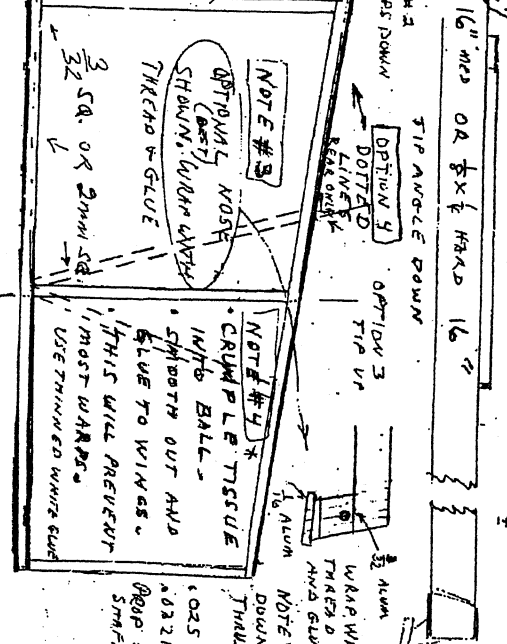 16" MED OR 1/8 X 1/2 HARD 16"
TIP ANGLE DOWN
#2
PS DOWN
OPTION 4
DOTTED
LINES
REAR ONLY
OPTION 3
TIP UP
NOTE #3
OPTIONAL NOSE
(BEST)
SHOWN. WRAP WITH
THREAD & GLUE
3/32 SQ. OR 2MM SQ.
NOTE #4 *
• CRUMPLE TISSUE
INTO BALL.
• SMOOTH OUT AND
GLUE TO WINGS.
• THIS WILL PREVENT
MOST WARPS.
USE THINNED WHITE GLUE
1/16 ALUM
1/32 ALUM
WRAP W
THREAD
AND GLU
NOTE
DOWN
THRU
.025
PROP
SHAF